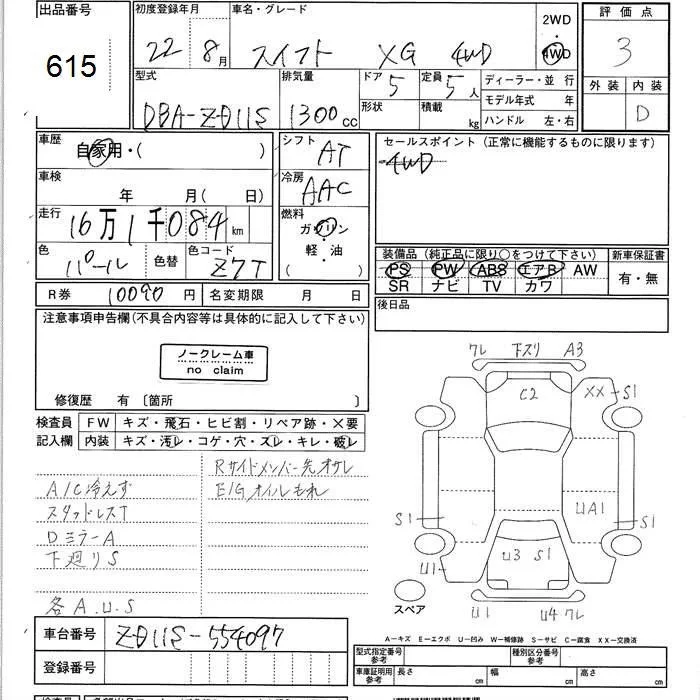 出品番号 初度登録年月 車名・グレード 2WD 評価点
615 22年 8月 スイフト XG 4WD 4WD 3
型式 排気量 ドア 5 定員 5人 ディーラー・並行 外装 内装
DBA-ZD11S 1300cc 形状 積載 kg モデル年式 年 D
ハンドル 左・右
車歴 自家用・( ) シフト AT セールスポイント (正常に機能するものに限ります)
4WD
車検 年 月(日) 冷房 AAC
走行 16万1千084km 燃料 ガソリン
軽・油
( )
色 パール 色替 色コード Z7T 装備品 (純正品に限り○をつけて下さい) 新車保証書
PS PW ABS エアB AW 有・無
SR ナビ TV カワ
R券 10090円 名変期限 月 日 後日品
注意事項申告欄(不具合内容等は具体的に記入して下さい)
ノークレーム車
no claim
修復歴 有 〔箇所 〕
検査員 FW キズ・飛石・ヒビ割・リペア跡・×要
記入欄 内装 キズ・汚レ・コゲ・穴・スレ・キレ・破レ
Rサイドメンバー先オサレ
A/C冷えず E/Gオイルもれ
スタッドレスT
DミラーA
下廻りS
各A.U.S
クレ 下スリ A3
C2 XX S1
S1 UA1 S1
U3 S1
U1
スペア U1 U4 クレ
A-キズ E-エクボ U-凹み W-補修跡 S-サビ C-腐食 XX-交換済
車台番号 ZD11S-554097
型式指定番号 参考 種別区分番号 参考
登録番号 車庫証明用 参考 長さ cm 幅 cm 高さ cm